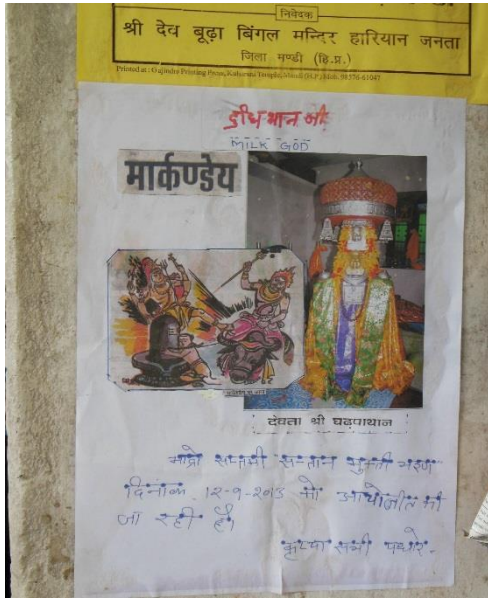 निवेदक
श्री देव बूढ़ा बिंगल मन्दिर हारियान जनता
जिला मण्डी (हि.प्र.)
Printed at : Gajindra Printing Press, Mandi (H.P.) Mob. 98576-61047
MILK GOD
मार्कण्डेय
देवता श्री घढ़पाथान
सप्तमी सन्तान
दिनांक 12-9-2013 को
जा रही है।
कृप्या सभी पधारे.